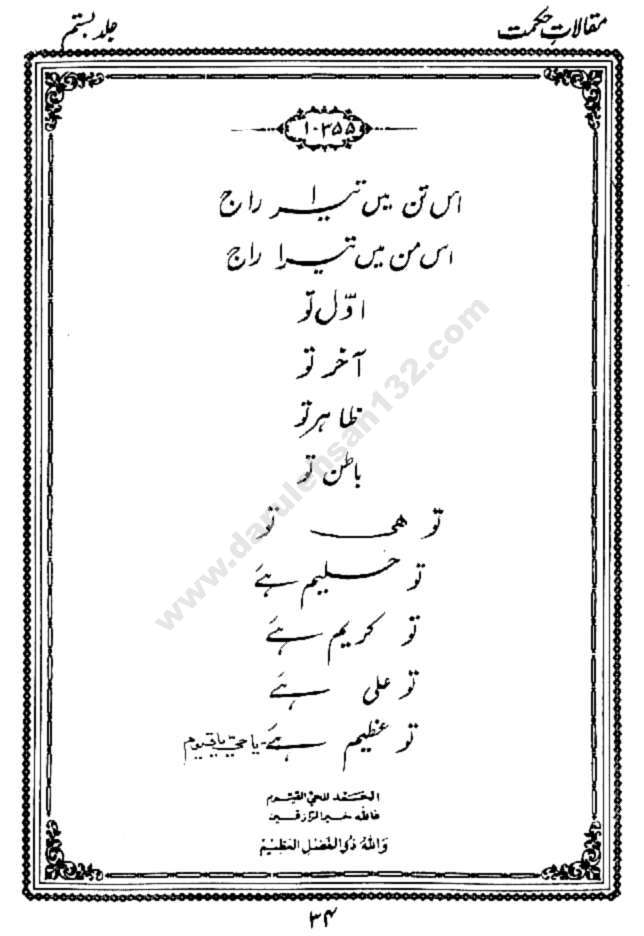 مقالاتِ حکمت
جلد بستم
۱۰۳۵۵
اس تن میں تیرا راج
اس من میں تیرا راج
اوّل تو
آخر تو
ظاہر تو
باطن تو
تو ھی تو
تو حلیم ہے
تو کریم ہے
تو علی ہے
تو عظیم ہے۔ یا حیّ یا قیّوم
الحَمد للحیّ القیّوم
فاللّٰہ خیر الرّازقین
وَاللّٰہُ ذُوالفَضلِ العَظِیم
۳۴
www.darulehsan132.com